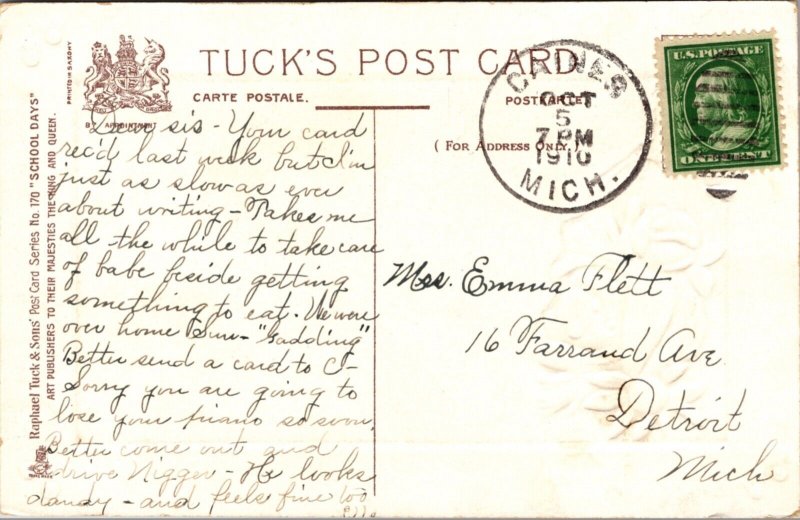 TUCK'S POST CARD
CARTE POSTALE.
POSTKARTE.
( FOR ADDRESS ONLY. )
BY APPOINTMENT
PRINTED IN SAXONY
Raphael Tuck & Sons' Post Card Series No. 170 "SCHOOL DAYS"
ART PUBLISHERS TO THEIR MAJESTIES THE KING AND QUEEN.
OCT
5
7 PM
1910
MICH.
U.S. POSTAGE
ONE CENT
Dear sis - Your card
rec'd last week but I'm
just as slow as ever
about writing - Takes me
all the while to take care
of babe beside getting
something to eat. We were
over home Sun - "Gadding"
Better send a card to C -
Sorry you are going to
lose your piano so soon.
Better come out and
drive Nigger - He looks
dandy - and feels fine too
Mrs. Emma Flett
16 Farrand Ave
Detroit
Mich